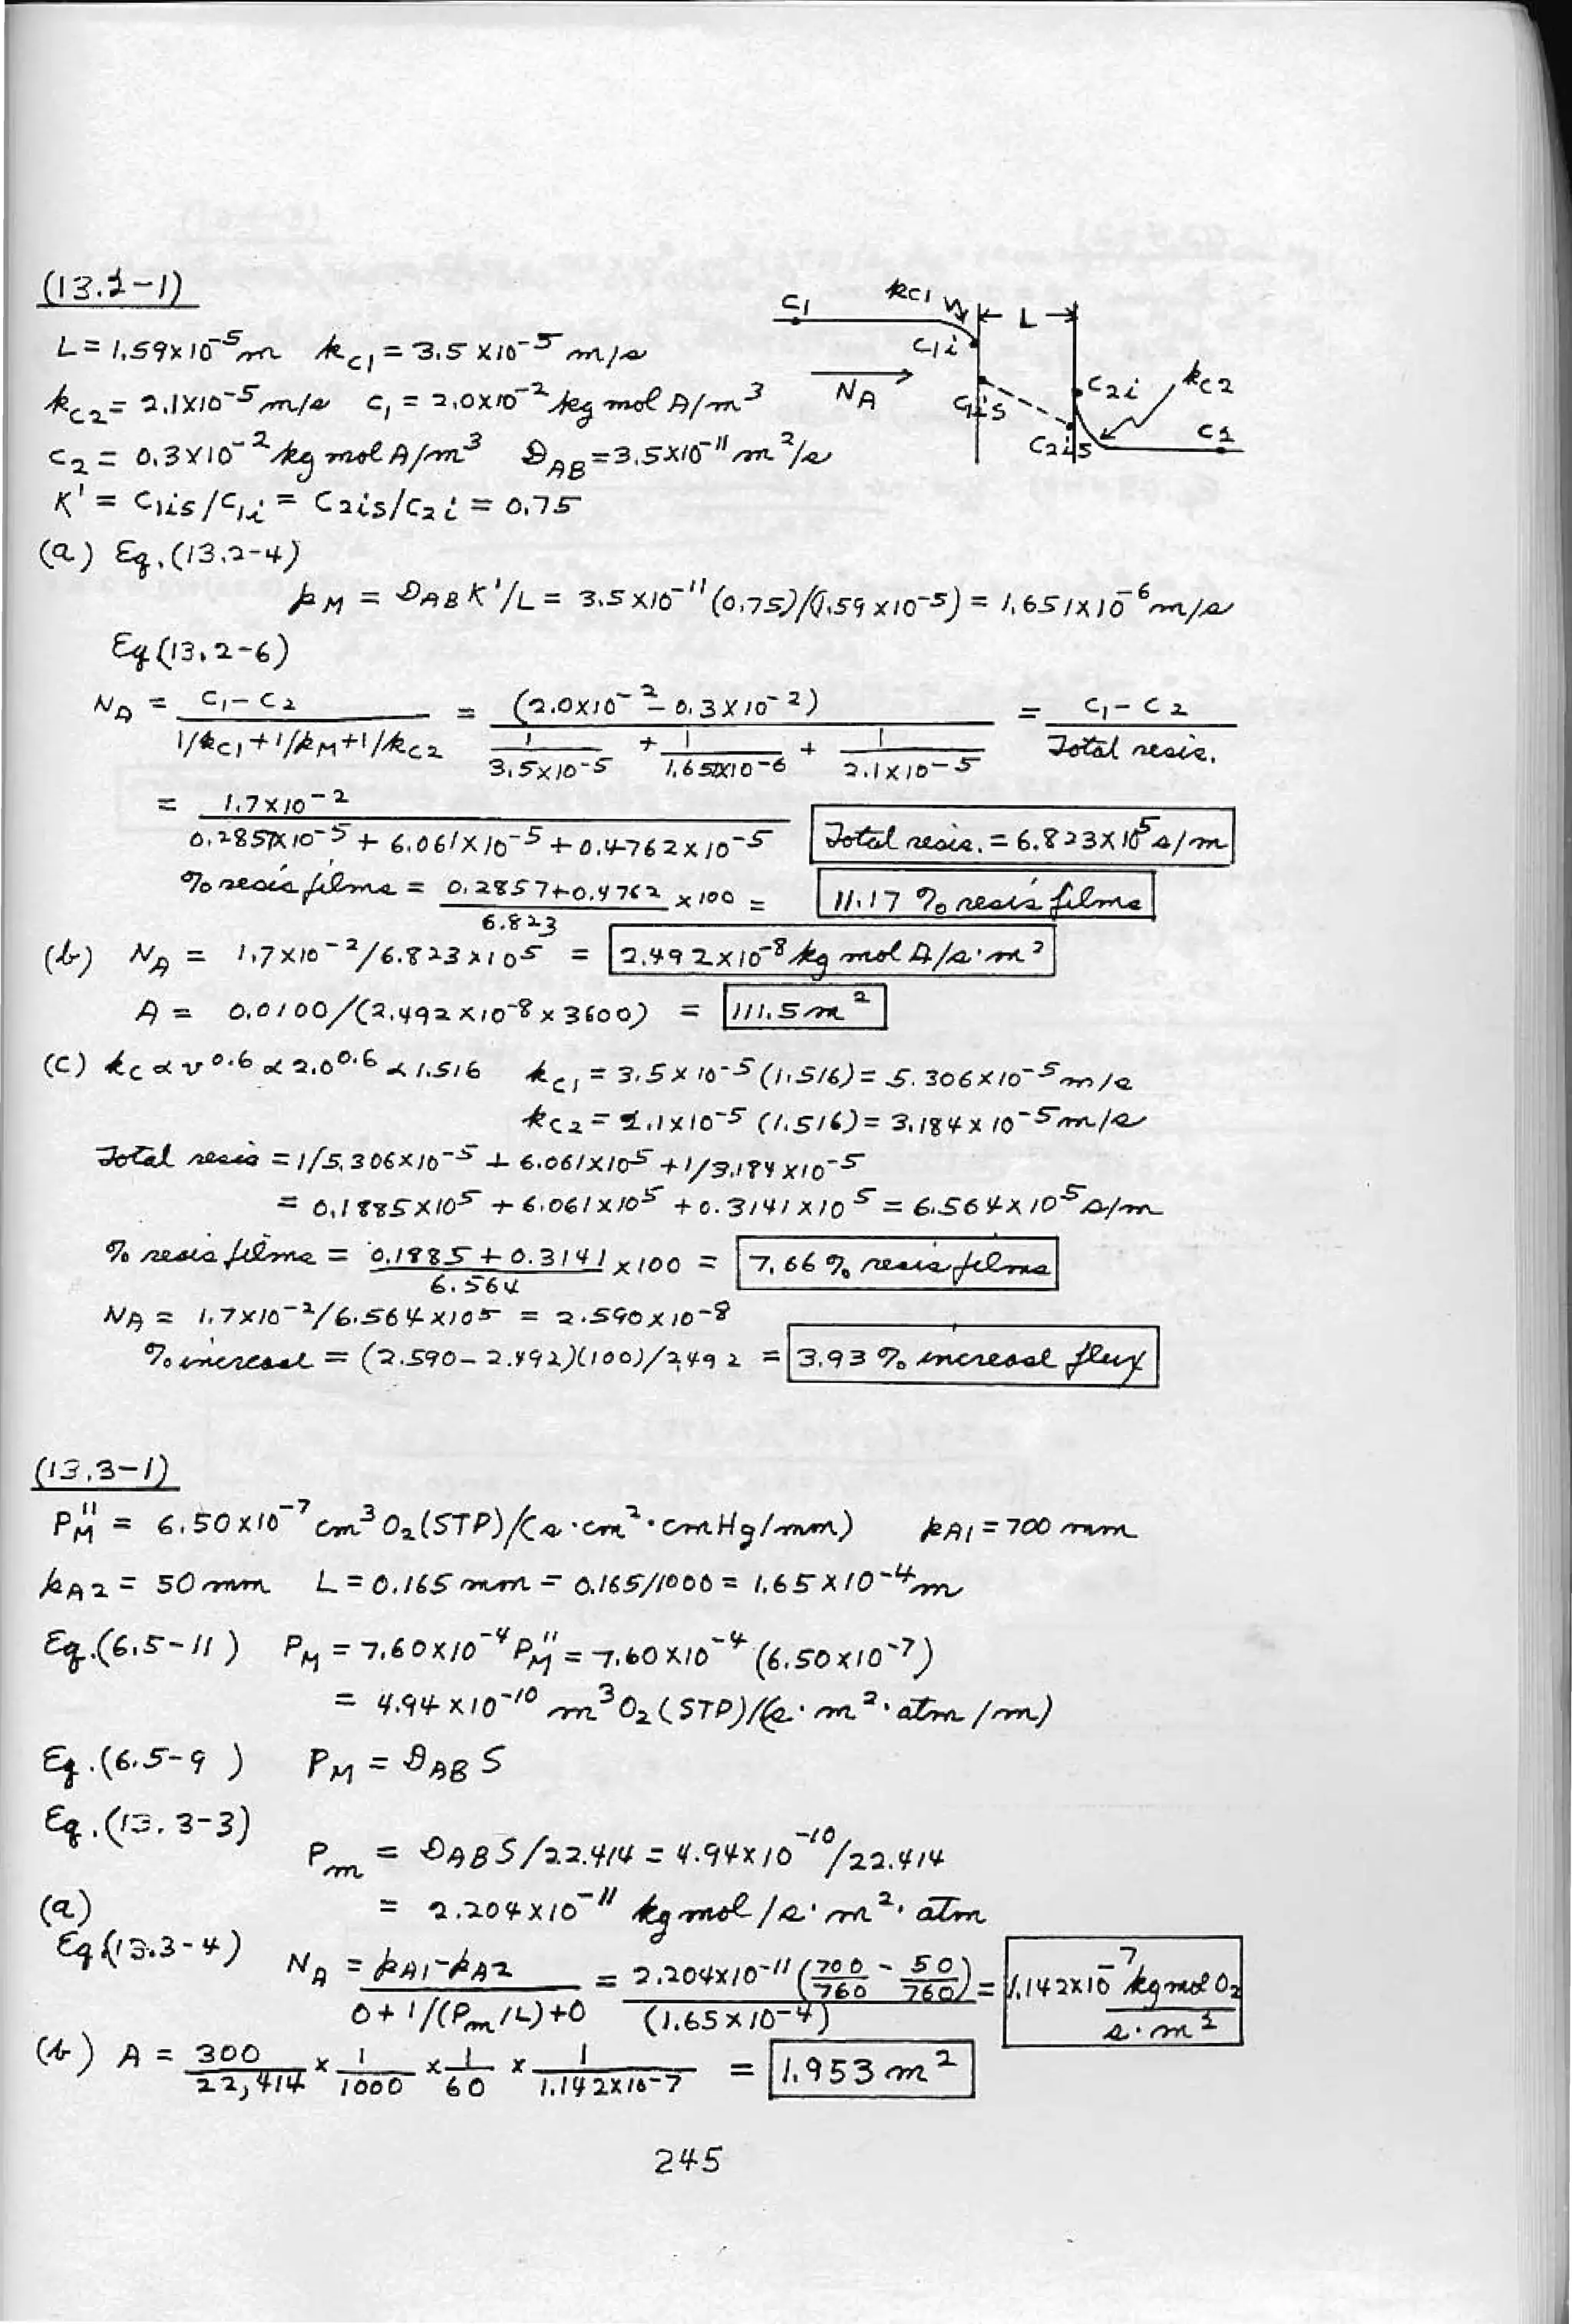 (13.2-1)
c₁ k_c1 ← L →
c₁ᵢ
N_A c₁ᵢₛ c₂ᵢ k_c2
c₂ᵢₛ c₂
L = 1.59×10⁻⁵ m k_c1 = 3.5×10⁻⁵ m/s
k_c2 = 2.1×10⁻⁵ m/s c₁ = 2.0×10⁻² kg mol A/m³
c₂ = 0.3×10⁻² kg mol A/m³ D_AB = 3.5×10⁻¹¹ m²/s
K' = c₁ᵢₛ/c₁ᵢ = c₂ᵢₛ/c₂ᵢ = 0.75
(a) Eq. (13.2-4)
p_M = D_AB K'/L = 3.5×10⁻¹¹ (0.75)/(1.59×10⁻⁵) = 1.651×10⁻⁶ m/s
Eq (13.2-6)
N_A = (c₁ - c₂)/(1/k_c1 + 1/p_M + 1/k_c2) = (2.0×10⁻² - 0.3×10⁻²)/(1/3.5×10⁻⁵ + 1/1.651×10⁻⁶ + 1/2.1×10⁻⁵) = (c₁ - c₂)/Total resis.
= 1.7×10⁻²/(0.2857×10⁻⁵ + 6.061×10⁻⁵ + 0.4762×10⁻⁵) Total resis. = 6.823×10⁵ s/m
% resis films = (0.2857+0.4762)/6.823 × 100 = 11.17 % resis films
(b) N_A = 1.7×10⁻²/6.823×10⁵ = 2.492×10⁻⁸ kg mol A/s·m²
A = 0.0100/(2.492×10⁻⁸ × 3600) = 111.5 m²
(c) k_c ∝ v^0.6 ∝ 2.0^0.6 ∝ 1.516 k_c1 = 3.5×10⁻⁵ (1.516) = 5.306×10⁻⁵ m/s
k_c2 = 2.1×10⁻⁵ (1.516) = 3.184×10⁻⁵ m/s
Total resis = 1/5.306×10⁻⁵ + 6.061×10⁵ + 1/3.184×10⁻⁵
= 0.1885×10⁵ + 6.061×10⁵ + 0.3141×10⁵ = 6.564×10⁵ s/m
% resis films = (0.1885 + 0.3141)/6.564 × 100 = 7.66 % resis films
N_A = 1.7×10⁻²/6.564×10⁵ = 2.590×10⁻⁸
% increase = (2.590 - 2.492)(100)/2.492 = 3.93 % increase flux
(13.3-1)
P_M'' = 6.50×10⁻⁷ cm³ O₂(STP)/(s·cm²·cmHg/mm) p_A1 = 700 mm
p_A2 = 50 mm L = 0.165 mm = 0.165/1000 = 1.65×10⁻⁴ m
Eq. (6.5-11) P_M = 7.60×10⁻⁴ P_M'' = 7.60×10⁻⁴ (6.50×10⁻⁷)
= 4.94×10⁻¹⁰ m³ O₂ (STP)/(s·m²·atm/m)
Eq. (6.5-9 ) P_M = D_AB S
Eq. (13.3-3)
P_m = D_AB S/22.414 = 4.94×10⁻¹⁰/22.414
(a) = 2.204×10⁻¹¹ kg mol/s·m²·atm
Eq (13.3-4) N_A = (p_A1 - p_A2)/(0 + 1/(P_m/L) + 0) = 2.204×10⁻¹¹ (700/760 - 50/760)/(1.65×10⁻⁴) = 1.142×10⁻⁷ kg mol O₂/s·m²
(b) A = 300/22,414 × 1/1000 × 1/60 × 1/1.142×10⁻⁷ = 1.953 m²
245